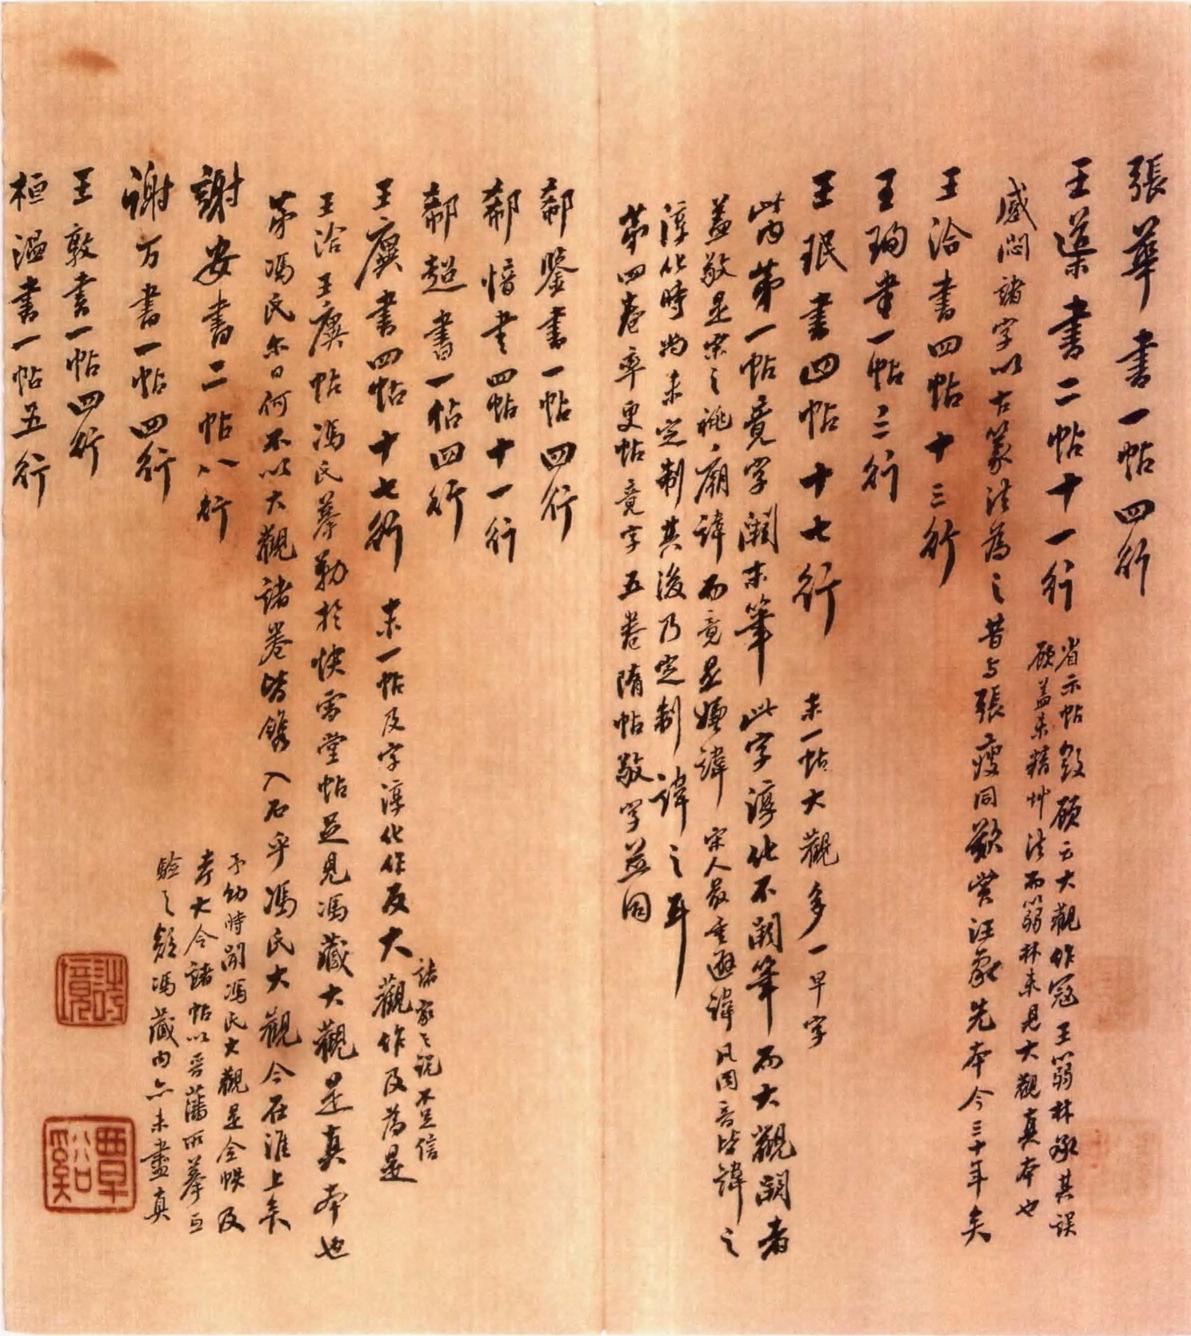 張華書一帖四行
王廙書二帖十一行
省示帖 顧云大觀作冠王篛林承其誤
顧蓋未精艸法而篛林未見大觀真本也
感悶諸字以古篆法為之昔与張瘦同歎賞汪家先本今三十年矣
王洽書四帖十三行
王珣書一帖三行
王珉書四帖十七行 末一帖大觀多一早字
此內第一帖竟字闕末筆此字淳化不闕筆而大觀闕者
蓋敬是宋之祧廟諱而竟是嫌諱宋人最重避諱凡同音皆諱之
淳化時尚未定制其後乃定制諱之耳
第四卷率更帖竟字五卷隋帖敬字並同
郗鑒書一帖四行
郗愔書四帖十一行
郗超書一帖四行
王廙書四帖十七行 末一帖及字淳化作反大觀作及為是
諸家之說不足信
王洽王廙帖馮氏摹勒於快雪堂帖足見馮藏大觀是真本也
第馮氏尔日何不以大觀諸卷皆鐫入石乎馮氏大觀今在淮上矣
謝安書二帖八行
予幼時聞馮氏大觀是全帙及
考大令諸帖以晉藩所摹互
驗之疑馮藏內亦未盡真
謝万書一帖四行
王敦書一帖四行
桓溫書一帖五行
詩境
覃谿